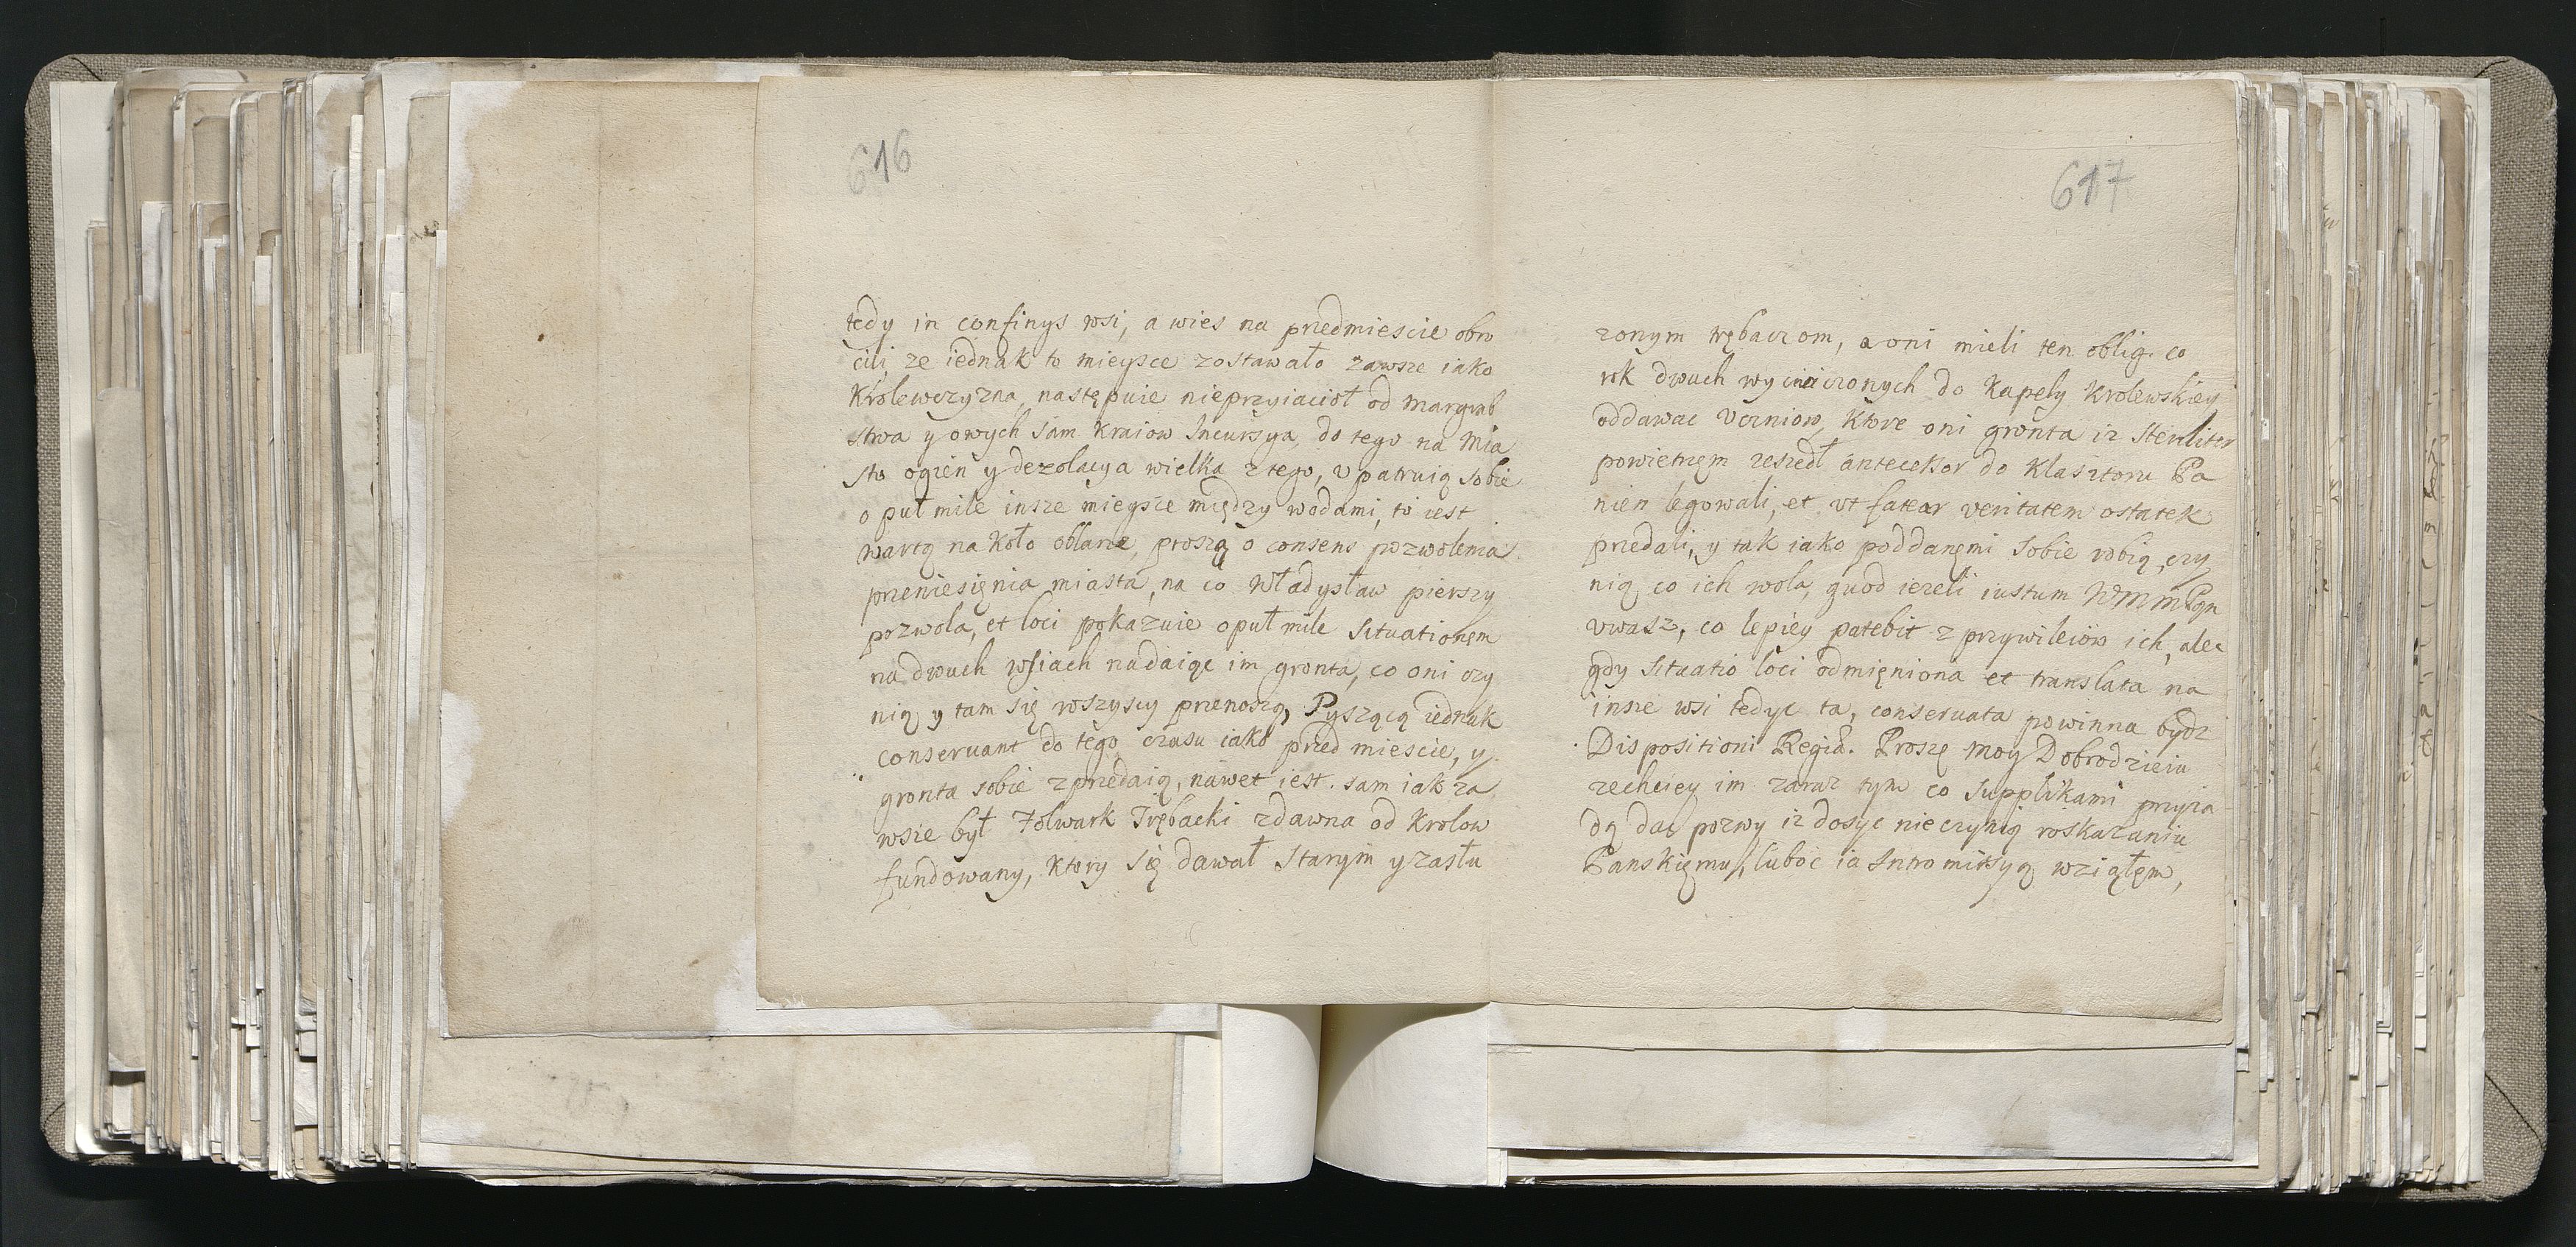 616
tedy in confinys wsi, a wies na przedmiescie obro
cili, ze iednak to mieysce zostawało zawsze iako
Krolewczyzna, następuie nieprzyiacioł od margrab
stwa y owych sam kraiow Incursya, do tego na Mia
sto ogien y dezolacya wielka z tego, upatruią sobie
o puł mile insze mieysce między wodami, to iest
wartą na koło oblane, proszą o consens pozwolenia
przeniesięnia miasta, na co Władysław pierszy
pozwola, et loci pokazuie o puł mile Situationem
na dwuch wsiach nadaiąc im gronta, co oni czy
nią y tam się wszyscy przenoszą, Pyszącą iednak
conseruant do tego czasu iako przed miescie, y
gronta sobie zprzedaią, nawet iest sam iak za
wsze był Folwark Trębacki zdawna od Krolow
fundowany, ktory się dawał Starym y zasłu
617
zonym trębaczom, a oni mieli ten oblig. co
rok dwuch wycwiczonych do Kapely Krolewskiey
oddawac Uczniow, ktore oni gronta iz
powietrzem zeszedł antecessor do Klasztoru Pa
nien legowali, et ut fatear veritatem ostatek
przedali, y tak iako poddanęmi sobie robią, czy
nią co ich wola, quod iezeli iustum WMMPan
uwasz, co lepiey patebit z przywileiow ich, ale
gdy Situatio loci odmięniona et translata na
insze wsi tedyc ta, conseruata powinna bydz
Dispositioni Regia. Proszę moy Dobrodzieiu
zechciey im zaraz tym co supplikami przyia
dą dac pozwy iz dosyc nie czynią roskazaniu
Panskięmu, luboc ia Intromissyą wziąłęm,